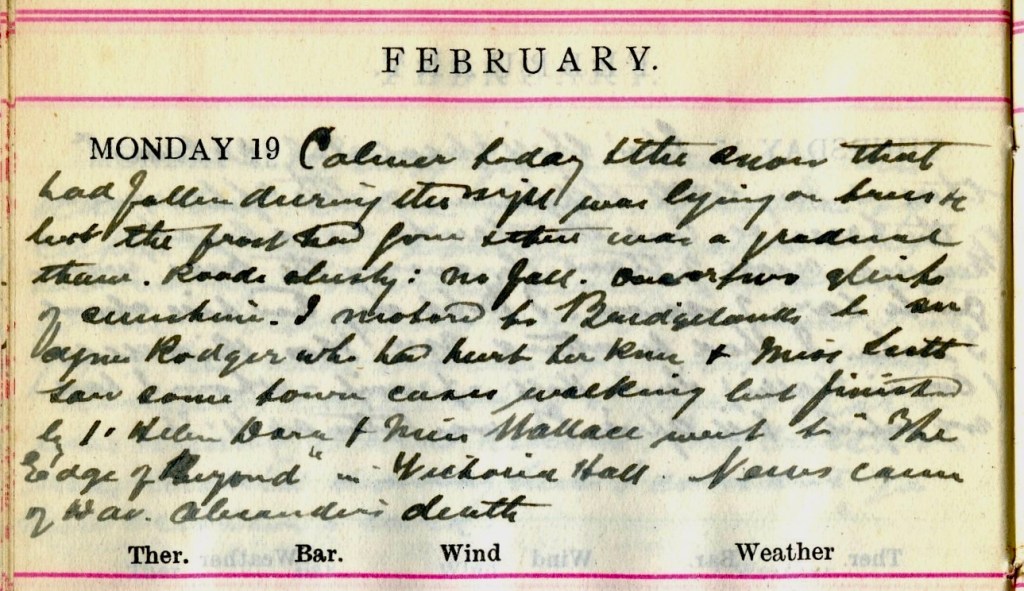 FEBRUARY.
MONDAY 19 Calmer today & the snow that
had fallen during the night was lying on trees &c
but the frost had gone & there was a gradual
thaw. Roads slushy: no fall. one or two glints
of sunshine. I motored to Bridgelands to see
Agnes Rodger who had hurt her knee & Miss Scott
Saw some town cases walking but finished
by 1. Helen Dora & Miss Wallace went to "The
Edge of Beyond" in Victoria Hall. News came
of Dav. Alexander's death
Ther. Bar. Wind Weather